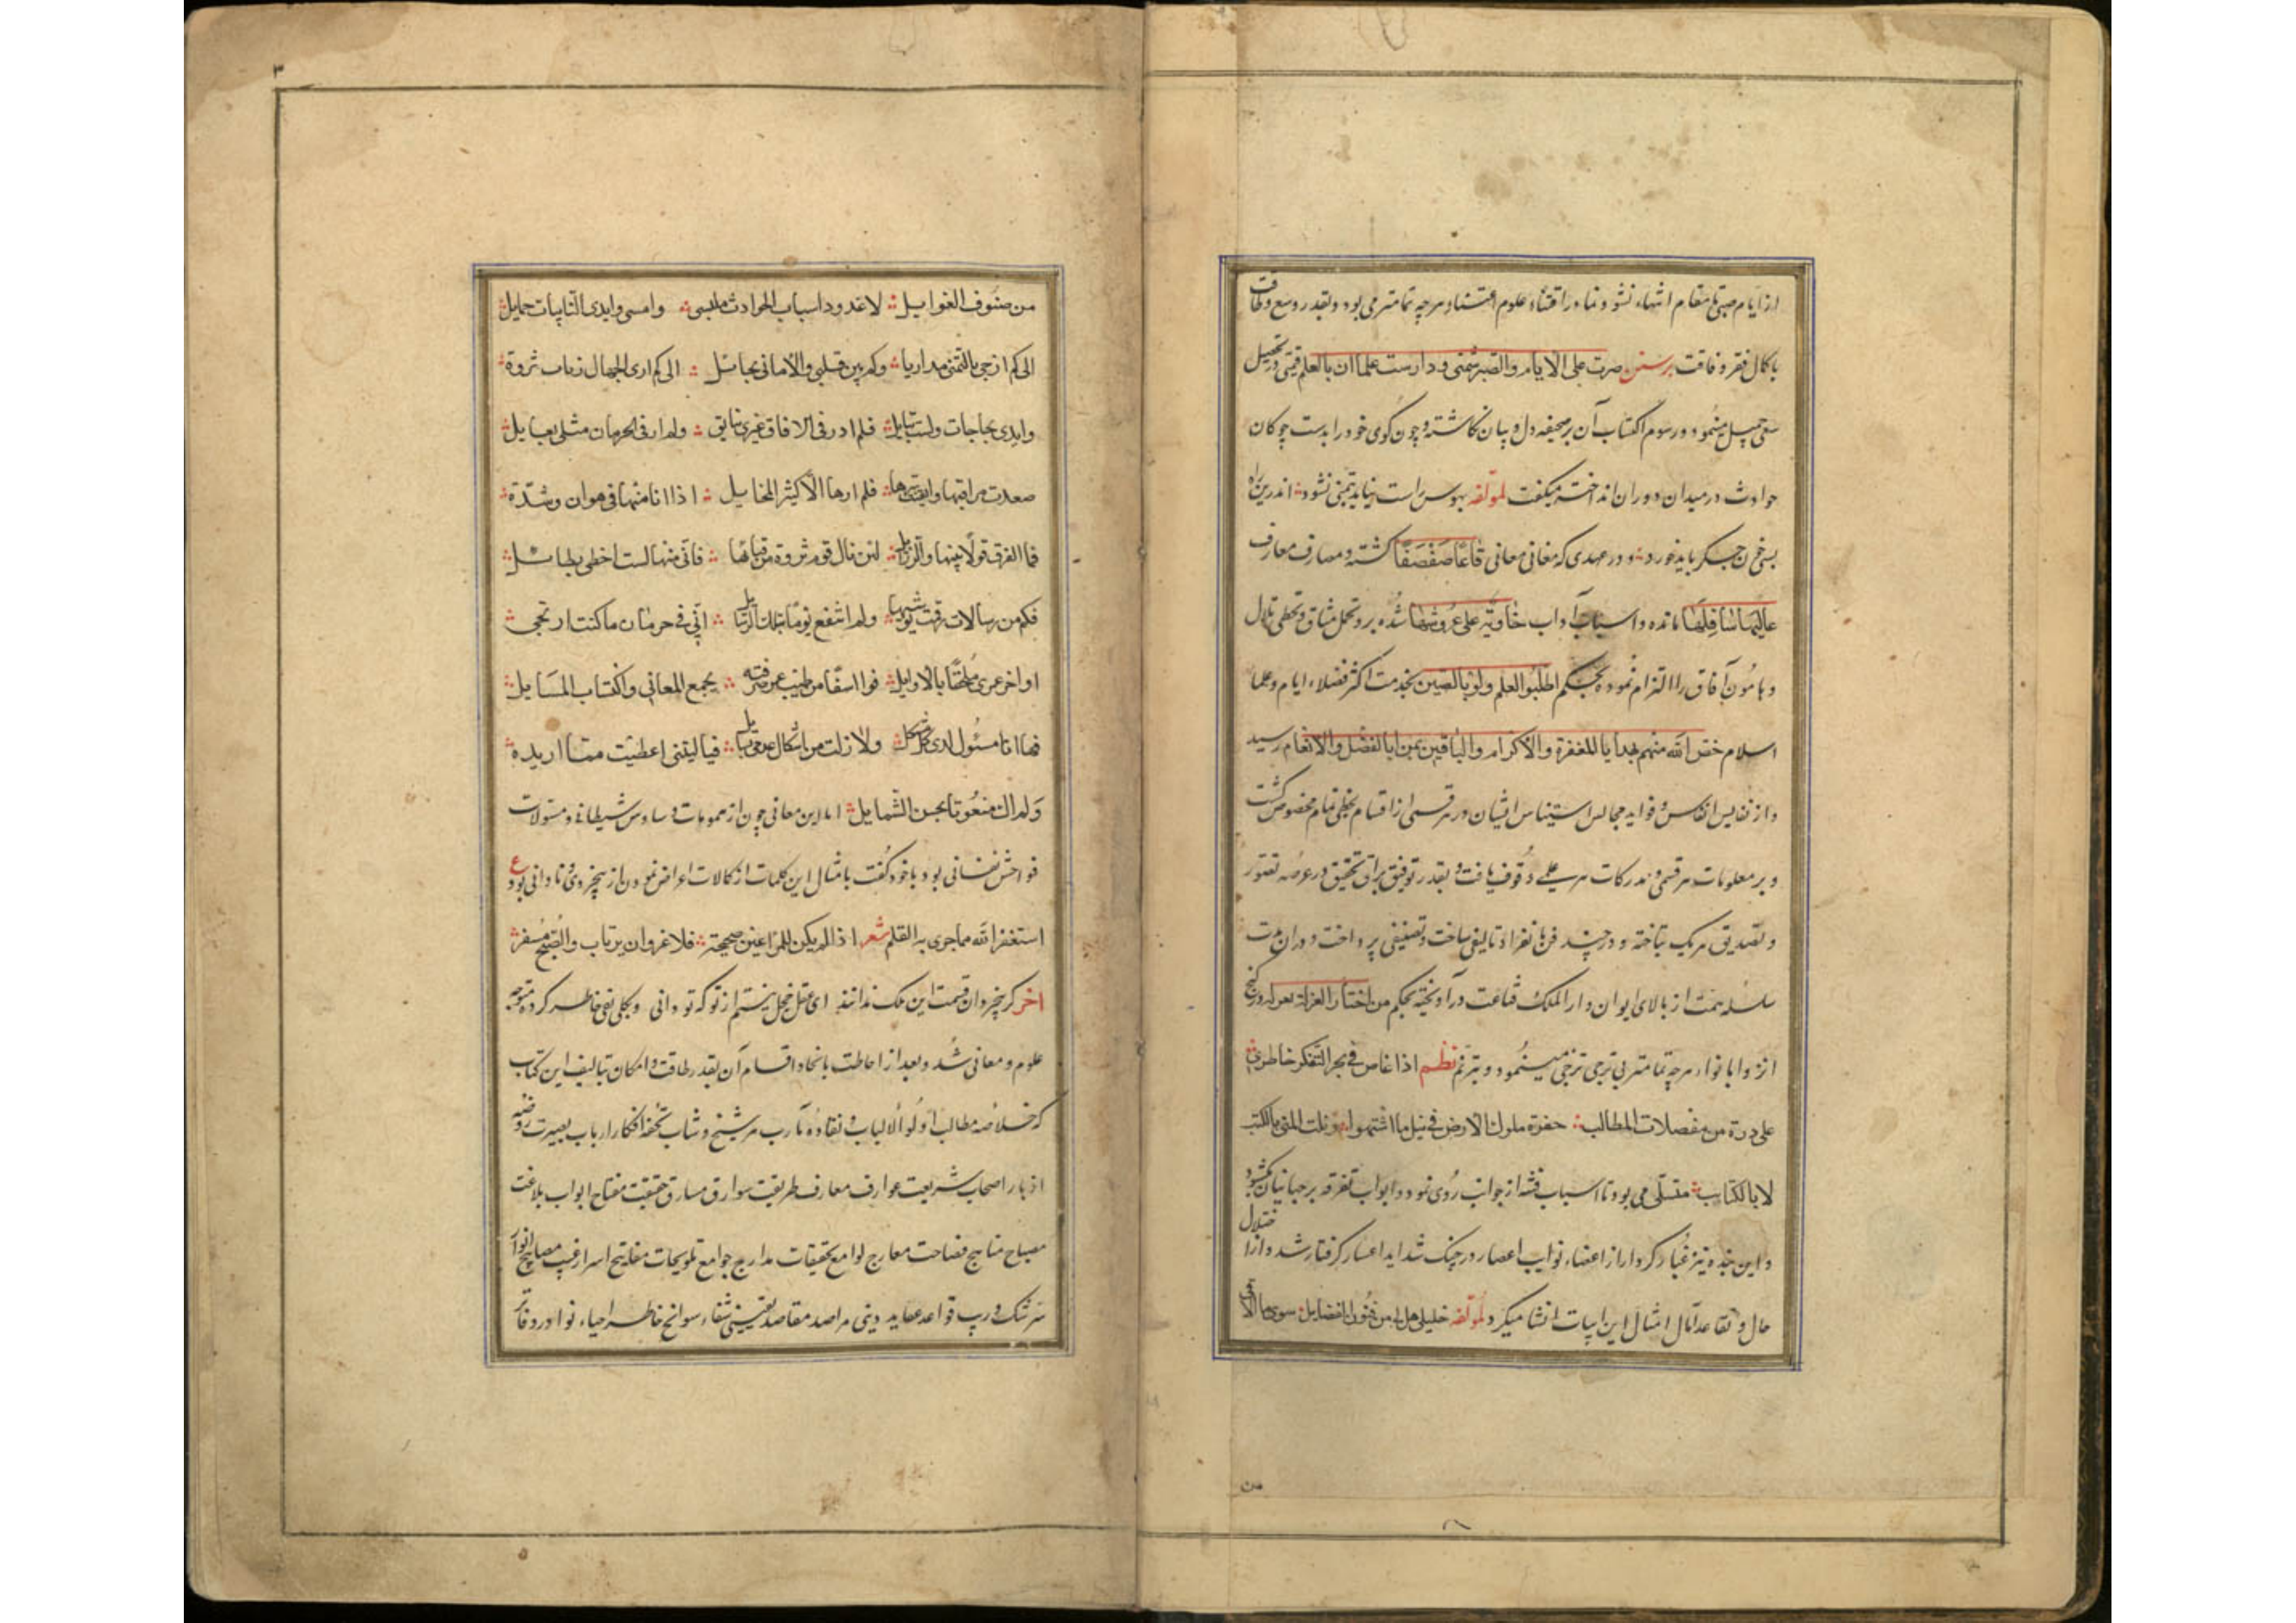 از ایام صبی تا مقام انتهاء نشو و نماء در اقتناء علوم اعتناء هرچه تمامتر می بود و بقدر وسع و طاقت
با کمال فقر و فاقت برسنن صرت علی الایام والصبر شیمتی ودارست علما ان بالعلم قیمتی در تحصیل
سعی جمیل مینمود و رسوم اکتساب آن بر صحیفه دل و بیان نکاشته و چون کوی خود را بدست چوکان
حوادث در میدان دوران انداخته میکفت لمؤلفه بهوس راست نیاید بتمنی نشود اندرین راه
بسی خون جکر باید خورد و در عهدی که مغانی معانی قاعا صفصفا کشته و مصارف معارف
عالیها سافلها مانده و اسباب آداب خاویة علی عروشها شده بر و تحمل مشاق و تخطی تلال
و هامون آفاق را التزام نموده بحکم اطلبوا العلم ولو بالصین بخدمت اکثر فضلاء ایام و علما
اسلام خص الله منهم بهدایا المغفرة والاکرام والباقین بمزایا الفضل والانعام رسید
و از نفایس انفاس و فواید مجالس استیناس ایشان در هر قسمی از اقسام بحظی تمام مخصوص کشت
و بر معلومات هر قسمی و مدرکات هر علمی وقوف یافت و بقدر توفیق براق تحقیق در عرصه تصور
و تصدیق هر یک بتاخته و در چند فن بانفراد تالیفی ساخت و تصنیفی پرداخت و در ان مدت
سلسله همت از بالای ایوان دار الملک قناعت در آویخته بحکم من اختار العزلة در کنج
انزوا بانواء هرچه تمامتر بی ترجی ترجی مینمود و بترنم نظم اذا غاص فی بحر التفکر خاطری
علی درة من مفصلات المطالب حقرة ملوک الارض فی نیل ما اشتهوا ونلت المنی بالکتب
لا بالکتایب متسلی می بود تا اسباب فتنه از جوانب روی نمود و ابواب تفرقه بر جهانیان بکشود
و این بنده نیز غبار کردار از اعضاء نوایب اعصار در چنک شداید اعسار کرفتار شد و از اختلال
حال و تقاعد آمال امثال این ابیات انشا میکرد لمؤلفه خلیلی هل لی من فنون الفضایل سوی ما الاقی
من
۳
من صنوف الغوایل لاغدو داسباب الحوادث ملبسی وامسی وایدی النایبات حمایل
الی کم ازجی بالتمنی مداریا وکم بین قلبی والامانی بحایل الی کم اری الجهال ارباب ثروة
وایدی بحاجات ولست بنایل فلم ادر فی الافاق غیری بایق ولم ار فی الحرمان مثلی بعایل
صعدت مراقیها وایقنت ها فلم ارها الا کثیر المخایل اذا انا منها فی هوان وشدة
فما الفرق قولا بینها والرذایل لئن نال قوم ثروة من قبالها فانی منها لست احظی بطایل
فکم من رسالات رقت بثیوبها ولم انتفع یوما بتلک الرسایل اانی فی حرمان ما کنت ارتجی
اواخر عمری ملحقا بالاوایل فوا اسفا من طیب عمر صرفته بجمع المعانی واکتساب المسایل
فها انا مسئول لدی کل مشکل ولا زلت من اشکال عدقی بنایل فیا لیتنی اعطیت مما اریده
ولم اک منعوتا بحسن الشمایل اما این معانی چون از همومات وساوس شیطانی و مسئولات
فواحش نفسانی بود با خود کفت بامثال این کلمات از کمالات اعراض نمودن از بیخردی و نادانی بود ع
استغفر الله مما جری به القلم شعر اذا لم یکن للمرء عین صحیحة فلا غرو ان یرتاب والصبح مسفر
اخر کر بیخردان قیمت این ملک ندانند ای عقل خجل نیستم از تو که تو دانی و بکلی نفی خاطر کرده متوجه
علوم و معانی شد و بعد از احاطت بانحاء و اقسام آن بقدر طاقت و امکان بتالیف این کتاب
که خلاصه مطالب اولو الالباب و نقاوه مآرب هر شیخ و شاب تحفه افکار ارباب بصیرت روضه
ازهار اصحاب شریعت عوارف معارف طریقت سوارق مسارق حقیقت مفتاح ابواب بلاغت
مصباح مناهج فصاحت معارج لوامع تحقیقات مدارج جوامع تلویحات مفاتیح اسرار غیب مصابیح انوار
سر شک و ریب قواعد عقاید دینی مراصد مقاصد یقینی شفاء سوانح خاطر احیاء نوادر دفاتر